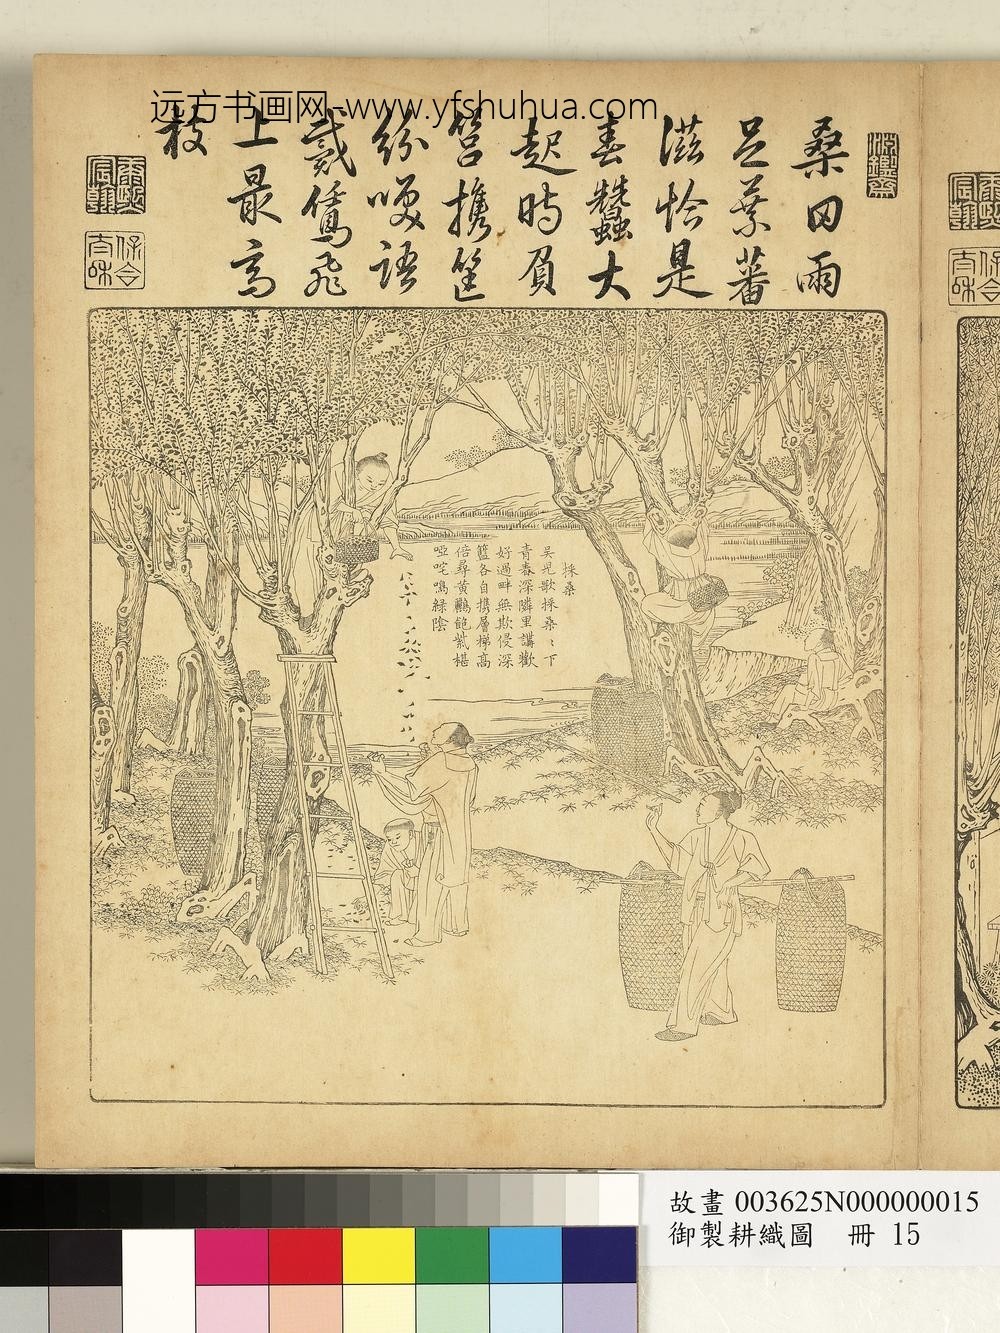 远方书画网-www.yfshuhua.com
淵鑑齋
桑田雨
足葉蕃
滋恰是
春蠶大
起時負
筥携筐
紛咲語
戴鵀飛
上最高
枝
康熙宸翰
保合太和
採桑
吳兒歌採桑〻下
青春深隣里講歡
好過畔無欺侵深
籃各自携層梯高
倍尋黃鸝飽紫椹
啞咤鳴綠陰
故畫 003625N000000015
御製耕織圖 冊 15